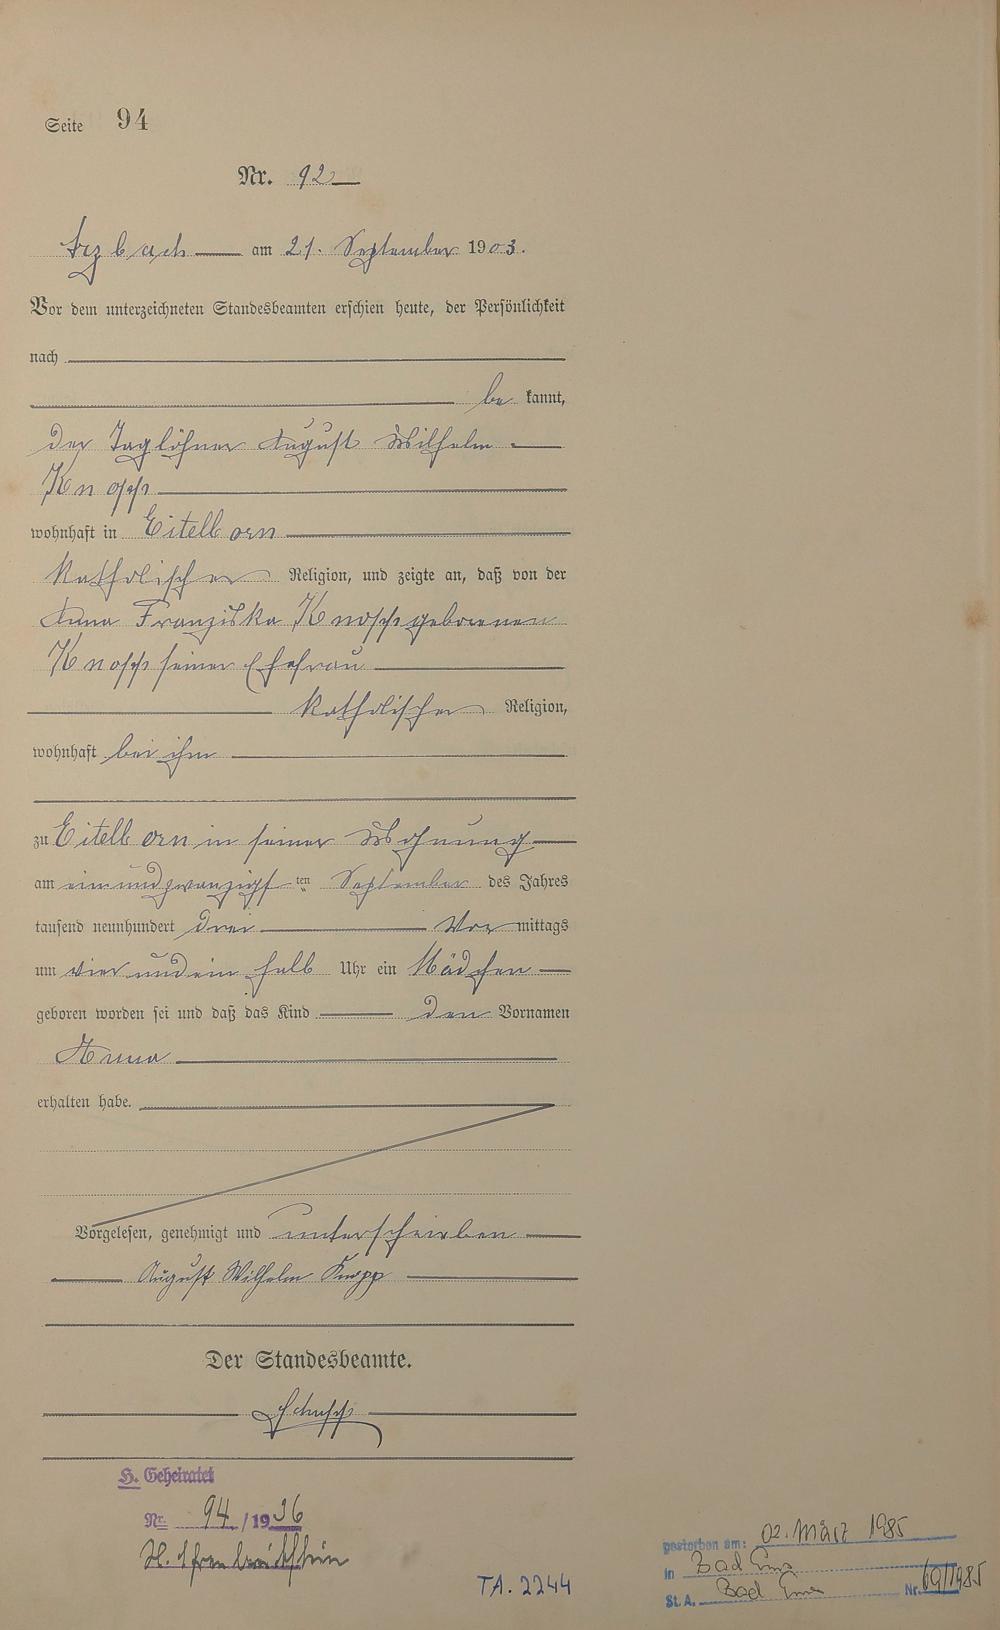 Seite 94
Nr. 92
Arzbach am 21. September 1903.
Vor dem unterzeichneten Standesbeamten erschien heute, der Persönlichkeit
nach
be kannt,
der Taglöhner August Wilhelm
Knopp
wohnhaft in Eitelborn
katholischer Religion, und zeigte an, daß von der
Anna Franziska Knopp geborenen
Knopp seiner Ehefrau
katholischer Religion,
wohnhaft bei ihm
zu Eitelborn in seiner Wohnung
am einundzwanzigsten September des Jahres
tausend neunhundert drei Vor mittags
um vier und ein halb Uhr ein Mädchen
geboren worden sei und daß das Kind den Vornamen
Anna
erhalten habe.
Vorgelesen, genehmigt und unterschrieben
August Wilhelm Knopp
Der Standesbeamte.
H. Geheiratet
Nr. 94/1936
TA. 2244
gestorben am: 02. März 1985
in Bad Ems
St. A. Bad Ems Nr. 69/1985